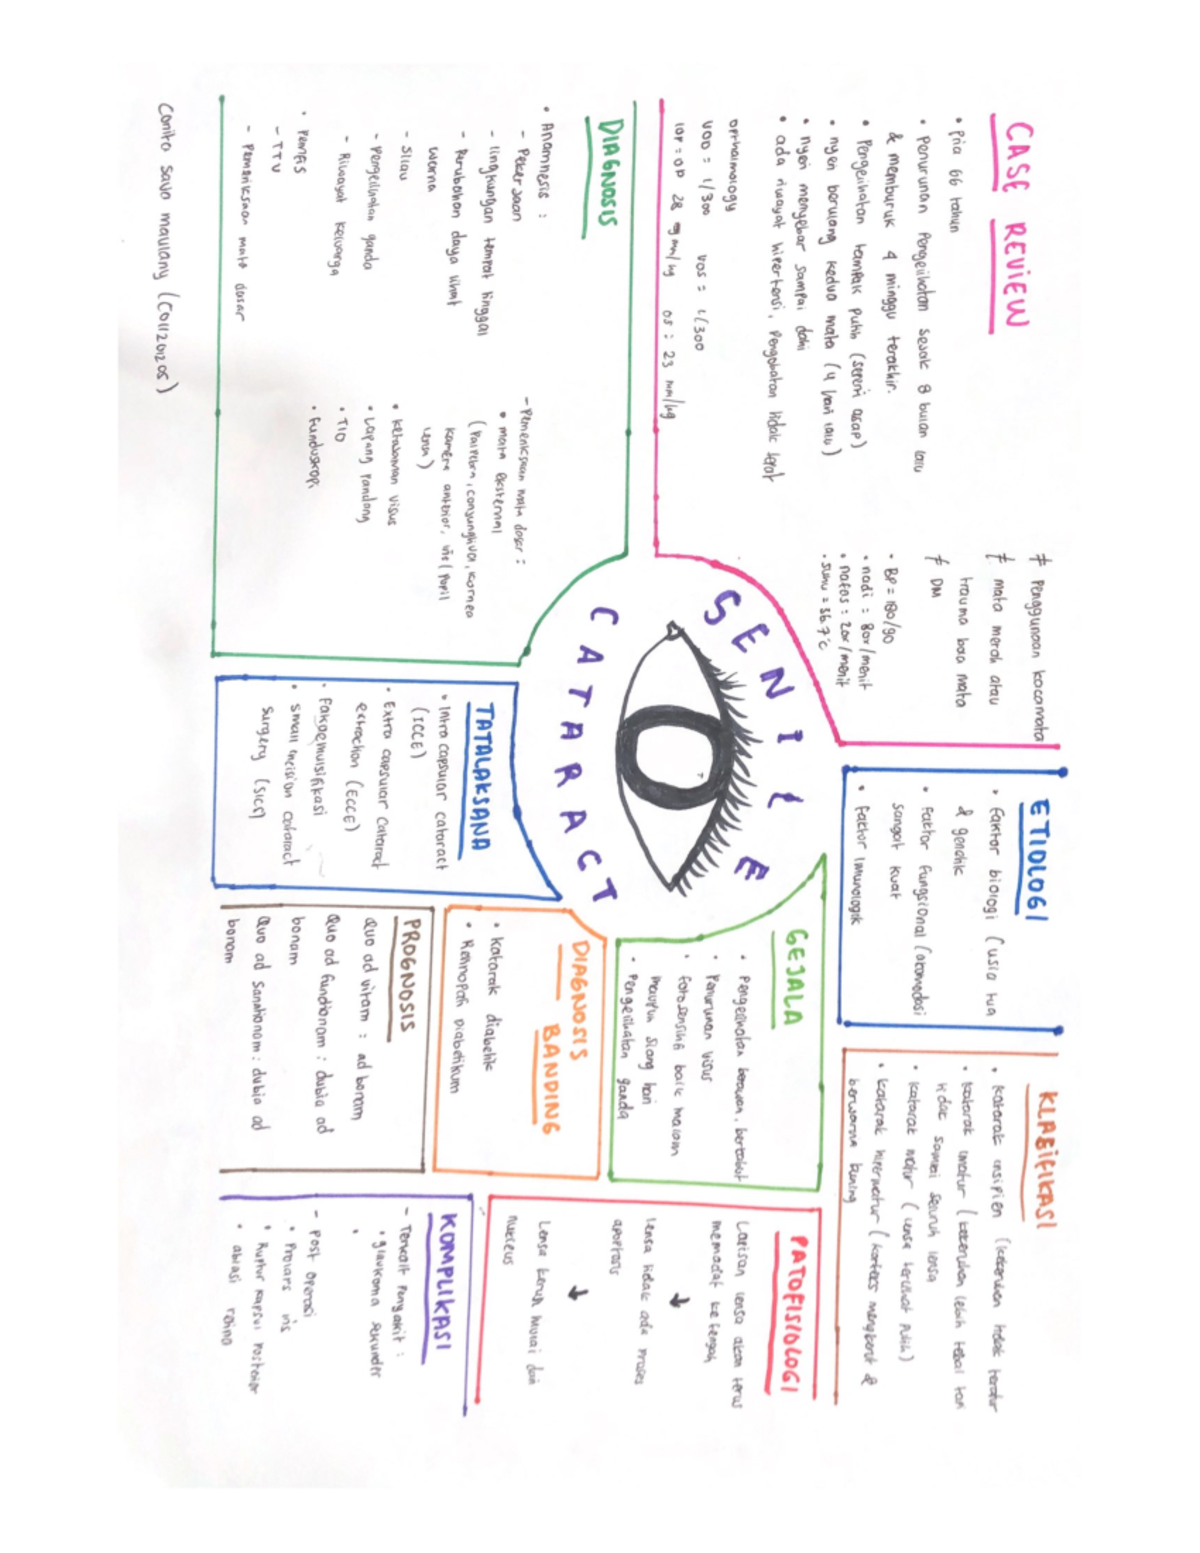 CASE REVIEW
• Pria 66 tahun
• Penurunan Pengelihatan sejak 8 bulan lalu
& memburuk 4 minggu terakhir.
• Pengelihatan tampak putih (seperti asap)
• nyeri berulang kedua mata (4 hari lalu)
• nyeri menyebar sampai dahi
• ada riwayat hipertensi, Pengobatan tidak
opthalmology
VOD = 1/300 VOS = 1/300
IOP = OD 28 mm/hg OS : 23 mm/hg
≠ Penggunaan kacamata
≠ mata merah atau
trauma bag mata
≠ DM
• BP = 180/90
• nadi : 80x/menit
• nafas : 20x/menit
• suhu = 36.7°c
SENILE
CATARACT
ETIOLOGI
• Faktor biologi (usia tua
& genetik
• Faktor Fungsional (akomodasi
sangat kuat
• Faktor Imunologik
KLASIFIKASI
• Katarak insipien (kekeruhan tidak teratur
• Katarak imatur (kekeruhan lebih tebal tapi
tidak sampai seluruh lensa
• Katarak matur (lensa terlihat putih)
• Katarak hipermatur (korteks mengkerut &
berwarna kuning
DIAGNOSIS
• Anamnesis :
- Pekerjaan
- lingkungan tempat tinggal
- Perubahan daya lihat
warna
- Silau
- Pengelihatan ganda
- Riwayat keluarga
• Pemfis
- TTV
- Pemeriksaan mata dasar
- Pemeriksaan mata dasar :
• mata eksternal
(Palpebra, conjungtiva, kornea
kamera anterior, iris (pupil
lensa)
• ketajaman visus
• Lapang Pandang
• TIO
• Funduskopi
TATALAKSANA
• Intra capsular cataract
(ICCE)
• Extra capsular cataract
extraction (ECCE)
• Fakoemulsifikasi
• small incision cataract
surgery (SICS)
GEJALA
• Pengelihatan berawan, berkabut
• Penurunan visus
• Fotosensitif baik malam
maupun siang hari
• Pengelihatan ganda
DIAGNOSIS
BANDING
• Katarak diabetik
• Retinopati Diabetikum
PROGNOSIS
Quo ad vitam : ad bonam
Quo ad Functionam : dubia ad
bonam
Quo ad Sanationam : dubia ad
bonam
PATOFISIOLOGI
Lapisan lensa akan terus
memadat ke tengah
↓
Lensa tidak ada proses
apoptosis
↓
Lensa keruh mulai dari
nukleus
KOMPLIKASI
- Terkait Penyakit :
• glaukoma sekunder
•
- Post operasi
• Prolaps iris
• Ruptur kapsul Posterior
• ablasi retina
Conito Savo maulany (C011201205)